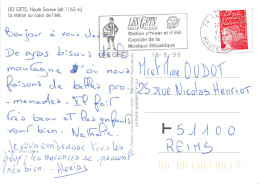 LES GETS, Haute Savoie (alt 1163 m)
La station au cœur de l'été
LES GETS
Station d'hiver et d'été
Capitale de la
Musique Mécanique
Bonjour à vous de
De gros bisous
montagne où nous
faisons de belles pro-
menades. Il fait
très beau et les enfants
vont bien. Nathalie.
Je vous embrasse tous les
les vacances se passent
très bien... Alexis
Mr et Mme OUDOT
25 rue Nicolas Henriot
51100
REIMS